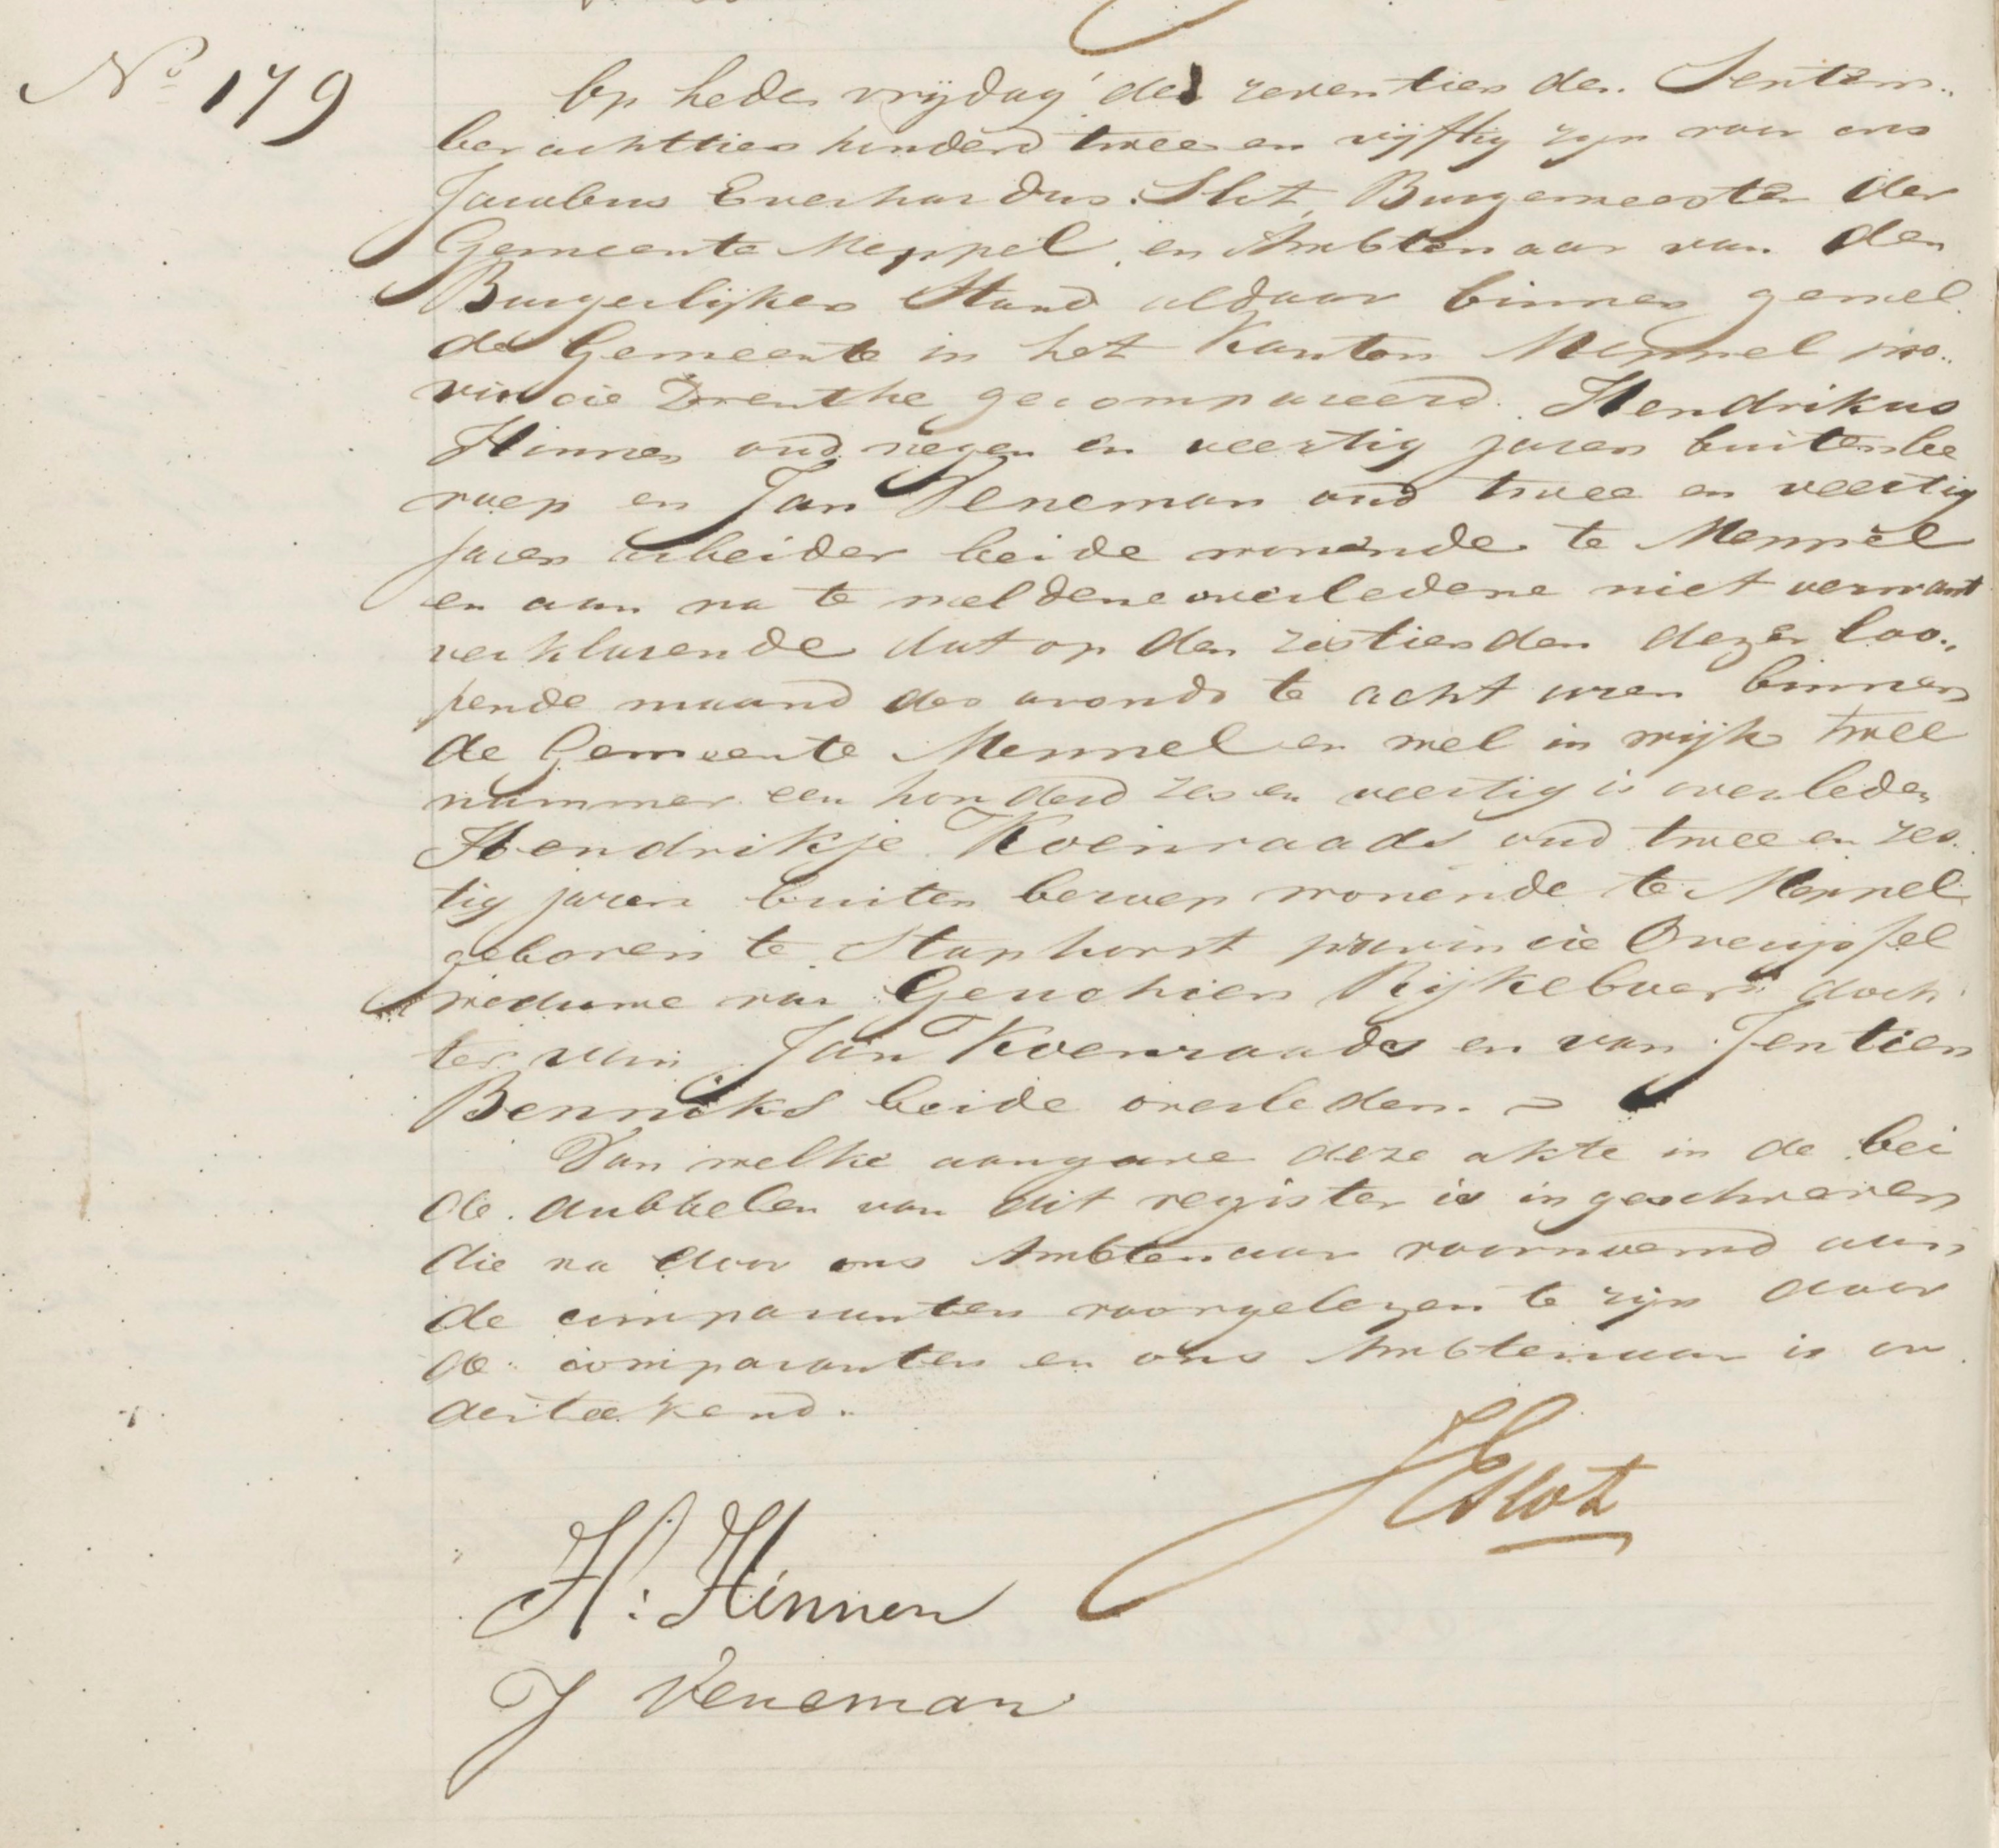 No 179
Op heden vrijdag den zeventienden Septem„
ber achttien honderd twee en vijftig zijn voor ons
Jacobus Everhardus Slot, Burgemeester der
Gemeente Meppel en Ambtenaar van den
Burgerlijken Stand aldaar binnen gemel
de Gemeente in het Kanton Meppel pro„
vincie Drenthe gecompareerd Hendrikus
Hinnen oud negen en veertig jaren buiten be
roep en Jan Veneman oud twee en veertig
jaren arbeider beide wonende te Meppel
en aan na te meldene overledene niet verwant
verklarende dat op den zestienden dezer loo„
pende maand des avonds te acht uren binnen
de Gemeente Meppel en wel in wijk twee
nummer een honderd zes en veertig is overleden
Hendrikje Koenraads oud twee en zes„
tig jaren buiten beroep wonende te Meppel
geboren te Staphorst provincie Overijssel
weduwe van Geuchien Rijkeboer doch
ter van Jan Koenraads en van Jentien
Bennîks beide overleden.
Van welke aangave deze akte in de bei
de dubbelen van dit register is ingeschreven
die na door ons Ambtenaar voornoemd aan
de comparanten voorgelezen te zijn door
de comparanten en ons Ambtenaar is on
derteekend.
JESlot
H: Hinnen
J Veneman